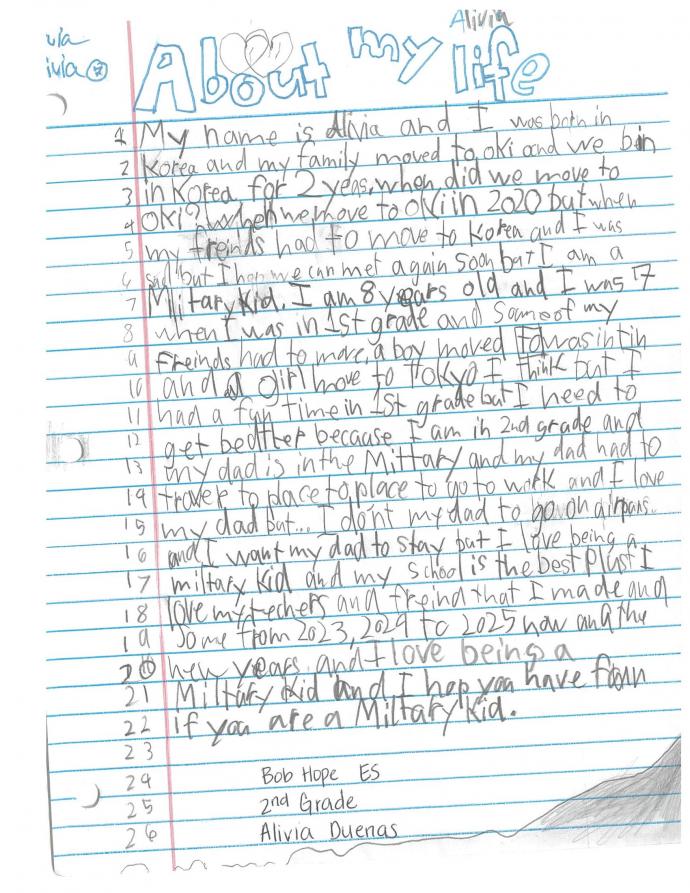 Alivia
About my life
1 My name is Alivia and I was born in
2 Korea and my family moved to oki and we bin
3 in Korea for 2 yeas, when did we move to
4 OKi? when we move to OKi in 2020 but when
5 my freinds had to move to Korea and I was
6 sad but I hop we can met again soon but I am a
7 Militarykid. I am 8 years old and I was 7
8 when I was in 1st grade and Some of my
9 Freinds had to move, a boy moved
10 and a girl move to Tokyo I think but I
11 had a fun time in 1st grade but I need to
12 get bedther because I am in 2nd grade and
13 my dad is in the Milttary and my dad had to
14 travel to place to place to go to work and I love
15 my dad but... I don't my dad to go on airpans.
16 and I want my dad to stay but I love being a
17 miltary kid and my school is the best plust I
18 love my techers and freind that I made and
19 Some from 2023, 2024 to 2025 now and the
20 new years. and I love being a
21 Miltary kid and I hop you have foun
22 if you are a Miltary kid.
23
24 Bob Hope ES
25 2nd Grade
26 Alivia Duenas